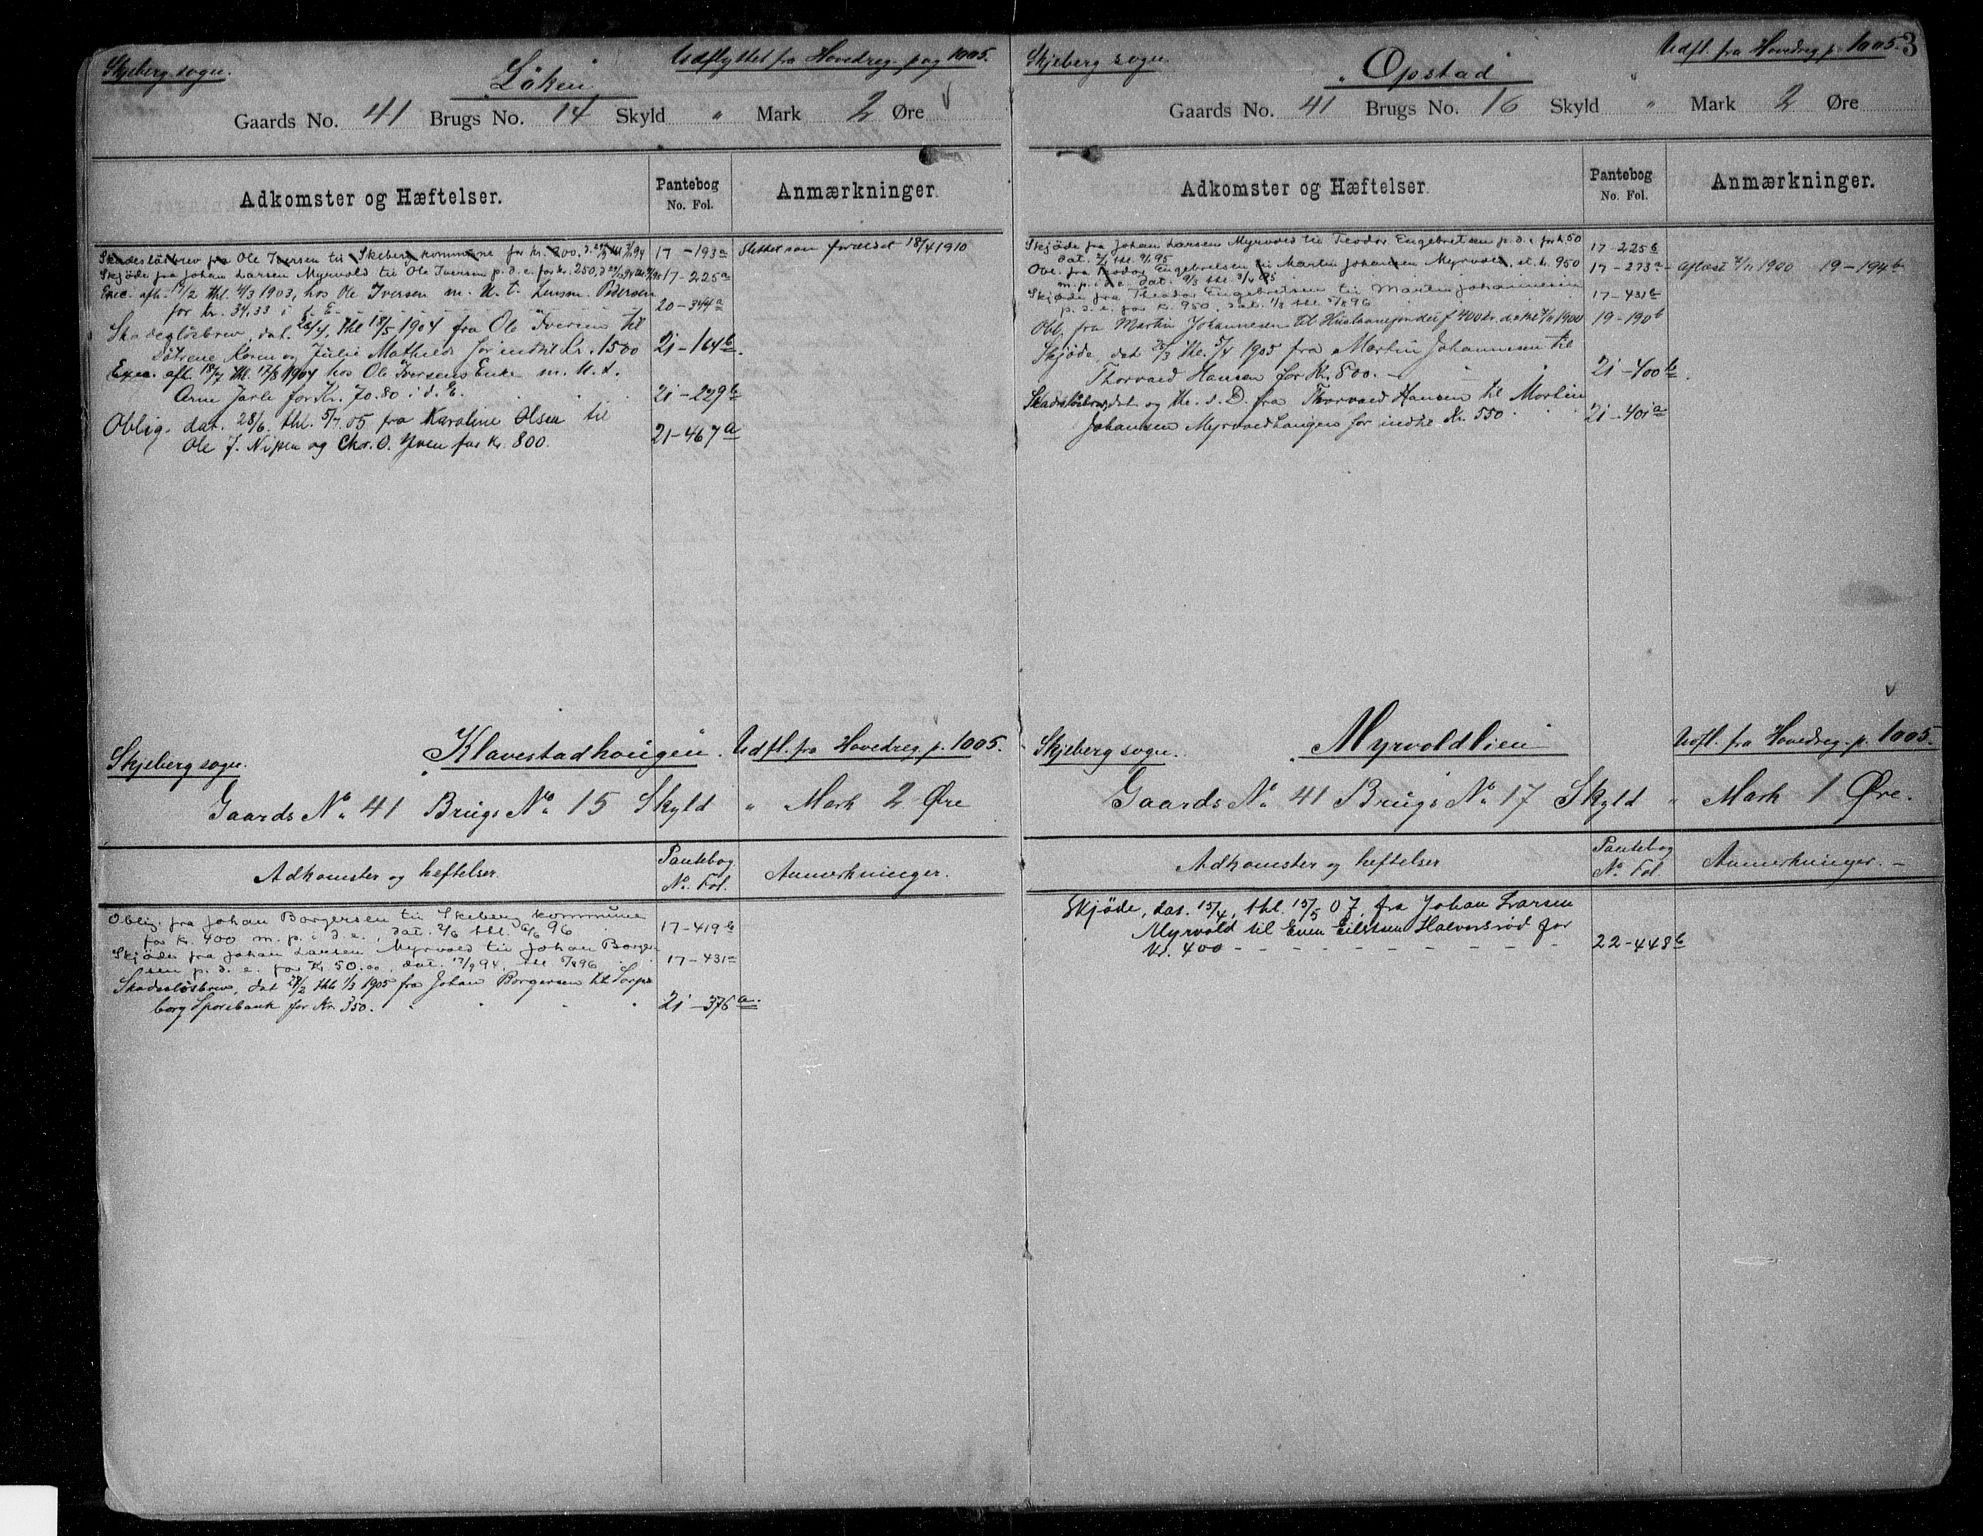 Skjeberg sogn. Udflyttet fra Hovedreg. pag 1005.
Löken
Gaards No. 41 Brugs No. 14 Skyld " Mark 2 Øre
Adkomster og Hæftelser. Pantebog No. Fol. Anmærkninger.
Skadeslösbrev fra Ole Iversen til Skeberg kommune for kr. 200, d. 17 - 193a Slettet som forældet 18/4 1910
Skjøde fra Johan Larsen Myrvold til Ole Iversen p. d. e. for kr. 250, 17-225a
Exec. afh. 17/2 thl. 4/3 1903, hos Ole Iversen m. U. t. Lensm. Pedersen
for kr. 34,33 i d. E. 20-344a
Skadeslösbrev, dat. 26/4, thl 18/5 1904 fra Ole Iversen til
Döttrene Karen og Julie Mathilde for indtil kr. 1500 21-164b
Exec. afh. 18/7 thl. 17/8 1904 hos Ole Iversens Enke m. U. t.
Arne Jarle for Kr. 70.80 i d. E. 21-229b
Oblig. dat. 28/6. thl. 5/7.05 fra Karoline Olsen til
Ole J. Nipen og Chr. O. Yven for Kr. 800. 21-467a
Skjeberg sogn. Klavestadhougen. Udfl. fra Hovedreg. p. 1005.
Gaards No. 41 Brugs No. 15 Skyld " Mark 2 Øre
Adkomster og heftelser. Pantebog No. Fol. Anmerkninger.
Oblig. fra Johan Borgersen til Skeberg kommune
for kr. 400 m. p. i d. e., dat. 2/6 thl. 6/6 96 17-419b
Skjøde fra Johan Larsen Myrvold til Johan Borger-
sen p. d. e. for Kr 50.00, dat. 17/9 94, thl 5/8 96 17-431a
Skadeslösbrev, dat 28/2 thl. 1/3 1905 fra Johan Borgersen til Sarps-
borg Sparebank for Kr. 350. 21-376a.
Skjeberg sogn. Udfl. fra Hovedreg. p. 1005. 3
Opstad
Gaards No. 41 Brugs No. 16 Skyld " Mark 2 Øre
Adkomster og Hæftelser. Pantebog No. Fol. Anmærkninger.
Skjøde fra Johan Larsen Myrvold til Teodor Engebretsen p. d. e. for k. 50
dat. thl. 95 17-225b
Obl. fra Teodor Engebretsen til Martin Johansen Myrvold, st. k. 950
m. p. i d. e. dat. 9/3 thl. 3/4 95 17-273a Aflæst 2/11 1900 19-194b
Skjøde fra Theodor Engebretsen til Martin Johannesen
p. d. e. for kr. 950, dat. 1/8 thl. 5/8 96 17-431b
Obl. fra Martin Johannesen til Hustadfonden f 400 kr. 1900 19-190b
Skjøde, dat 25/3 thl. 5/4 1905 fra Martin Johannesen til
Thorvald Hansen for Kr. 800. 21-400b.
Skadeslösbrev, dat og thl. s. D. fra Thorvald Hansen til Martin
Johansen Myrvoldhaugen for indtil Kr. 550 21-401a
Skjeberg sogn. Myrvoldlien Udfl. fra Hovedreg. p. 1005.
Gaards No. 41 Brugs No. 17 Skyld " Mark 1 Øre.
Adkomster og heftelser Pantebog No. Fol. Anmerkninger. -
Skjöde, dat. 15/4, thl. 15/5 07, fra Johan Larsen
Myrvold til Even Eilertsen Halvorsrød for
Kr. 400 22-448b